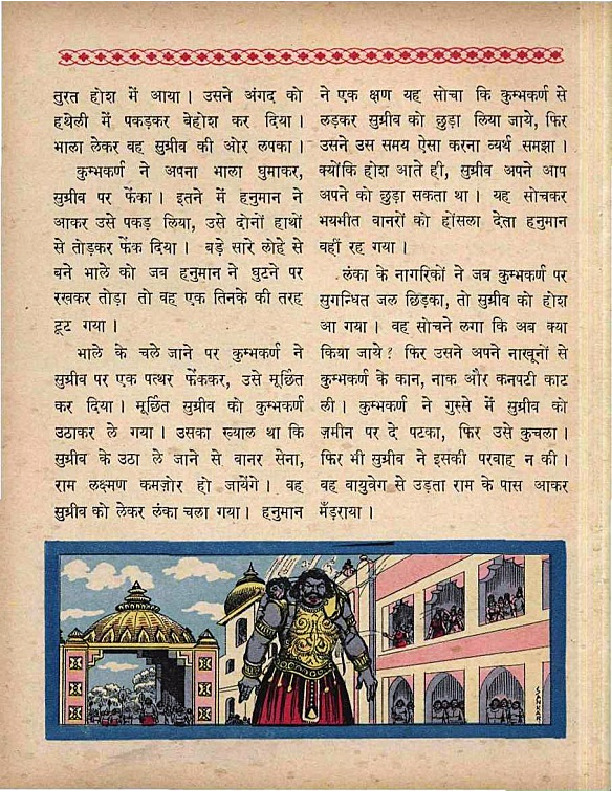 तुरत होश में आया। उसने अंगद को
हथेली में पकड़कर बेहोश कर दिया।
भाला लेकर वह सुग्रीव की ओर लपका।
कुम्भकर्ण ने अपना भाला घुमाकर,
सुग्रीव पर फेंका। इतने में हनुमान ने
आकर उसे पकड़ लिया, उसे दोनों हाथों
से तोड़कर फेंक दिया। बड़े सारे लोहे से
बने भाले को जब हनुमान ने घुटने पर
रखकर तोड़ा तो वह एक तिनके की तरह
टूट गया।
भाले के चले जाने पर कुम्भकर्ण ने
सुग्रीव पर एक पत्थर फेंककर, उसे मूर्छित
कर दिया। मूर्छित सुग्रीव को कुम्भकर्ण
उठाकर ले गया। उसका ख्याल था कि
सुग्रीव के उठा ले जाने से वानर सेना,
राम लक्ष्मण कमज़ोर हो जायेंगे। वह
सुग्रीव को लेकर लंका चला गया। हनुमान
ने एक क्षण यह सोचा कि कुम्भकर्ण से
लड़कर सुग्रीव को छुड़ा लिया जाये, फिर
उसने उस समय ऐसा करना व्यर्थ समझा।
क्योंकि होश आते ही, सुग्रीव अपने आप
अपने को छुड़ा सकता था। यह सोचकर
भयभीत वानरों को हौंसला देता हनुमान
वहीं रह गया।
लंका के नागरिकों ने जब कुम्भकर्ण पर
सुगन्धित जल छिड़का, तो सुग्रीव को होश
आ गया। वह सोचने लगा कि अब क्या
किया जाये? फिर उसने अपने नाखूनों से
कुम्भकर्ण के कान, नाक और कनपटी काट
ली। कुम्भकर्ण ने गुस्से में सुग्रीव को
ज़मीन पर दे पटका, फिर उसे कुचला।
फिर भी सुग्रीव ने इसकी परवाह न की।
वह वायुवेग से उड़ता राम के पास आकर
मँडराया।
SANKAR